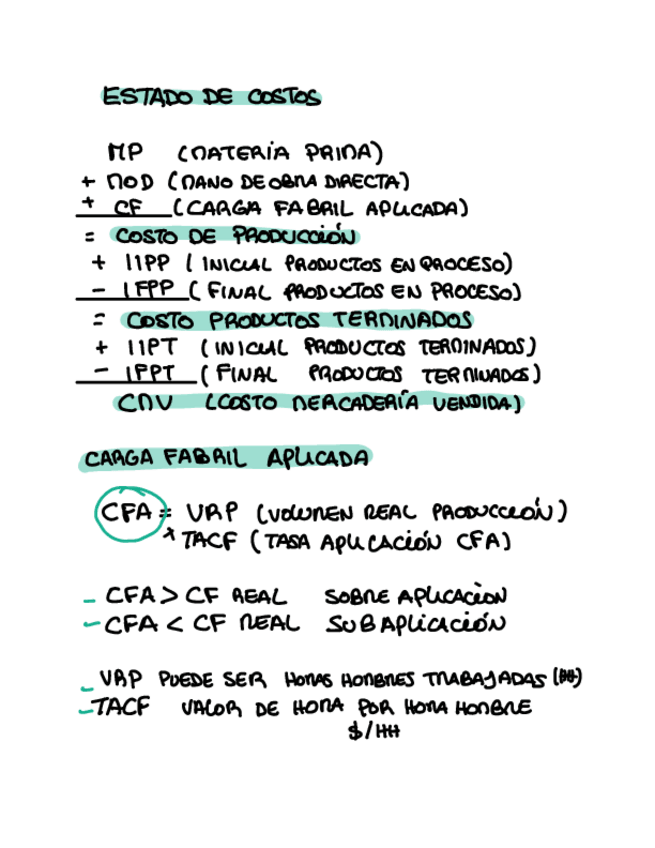 ESTADO DE COSTOS
MP (MATERIA PRIMA)
+ MOD (MANO DE OBRA DIRECTA)
+ CF (CARGA FABRIL APLICADA)
= COSTO DE PRODUCCIÓN
+ IIPP (INICIAL PRODUCTOS EN PROCESO)
- IFPP (FINAL PRODUCTOS EN PROCESO)
= COSTO PRODUCTOS TERMINADOS
+ IIPT (INICIAL PRODUCTOS TERMINADOS)
- IFPT (FINAL PRODUCTOS TERMINADOS)
CMV (COSTO MERCADERÍA VENDIDA)
CARGA FABRIL APLICADA
CFA = VRP (VOLUMEN REAL PRODUCCIÓN)
* TACF (TASA APLICACIÓN CFA)
- CFA > CF REAL SOBRE APLICACION
- CFA < CF REAL SUBAPLICACIÓN
- VRP PUEDE SER HORAS HOMBRES TRABAJADAS (HH)
- TACF VALOR DE HORA POR HORA HOMBRE
$/HH